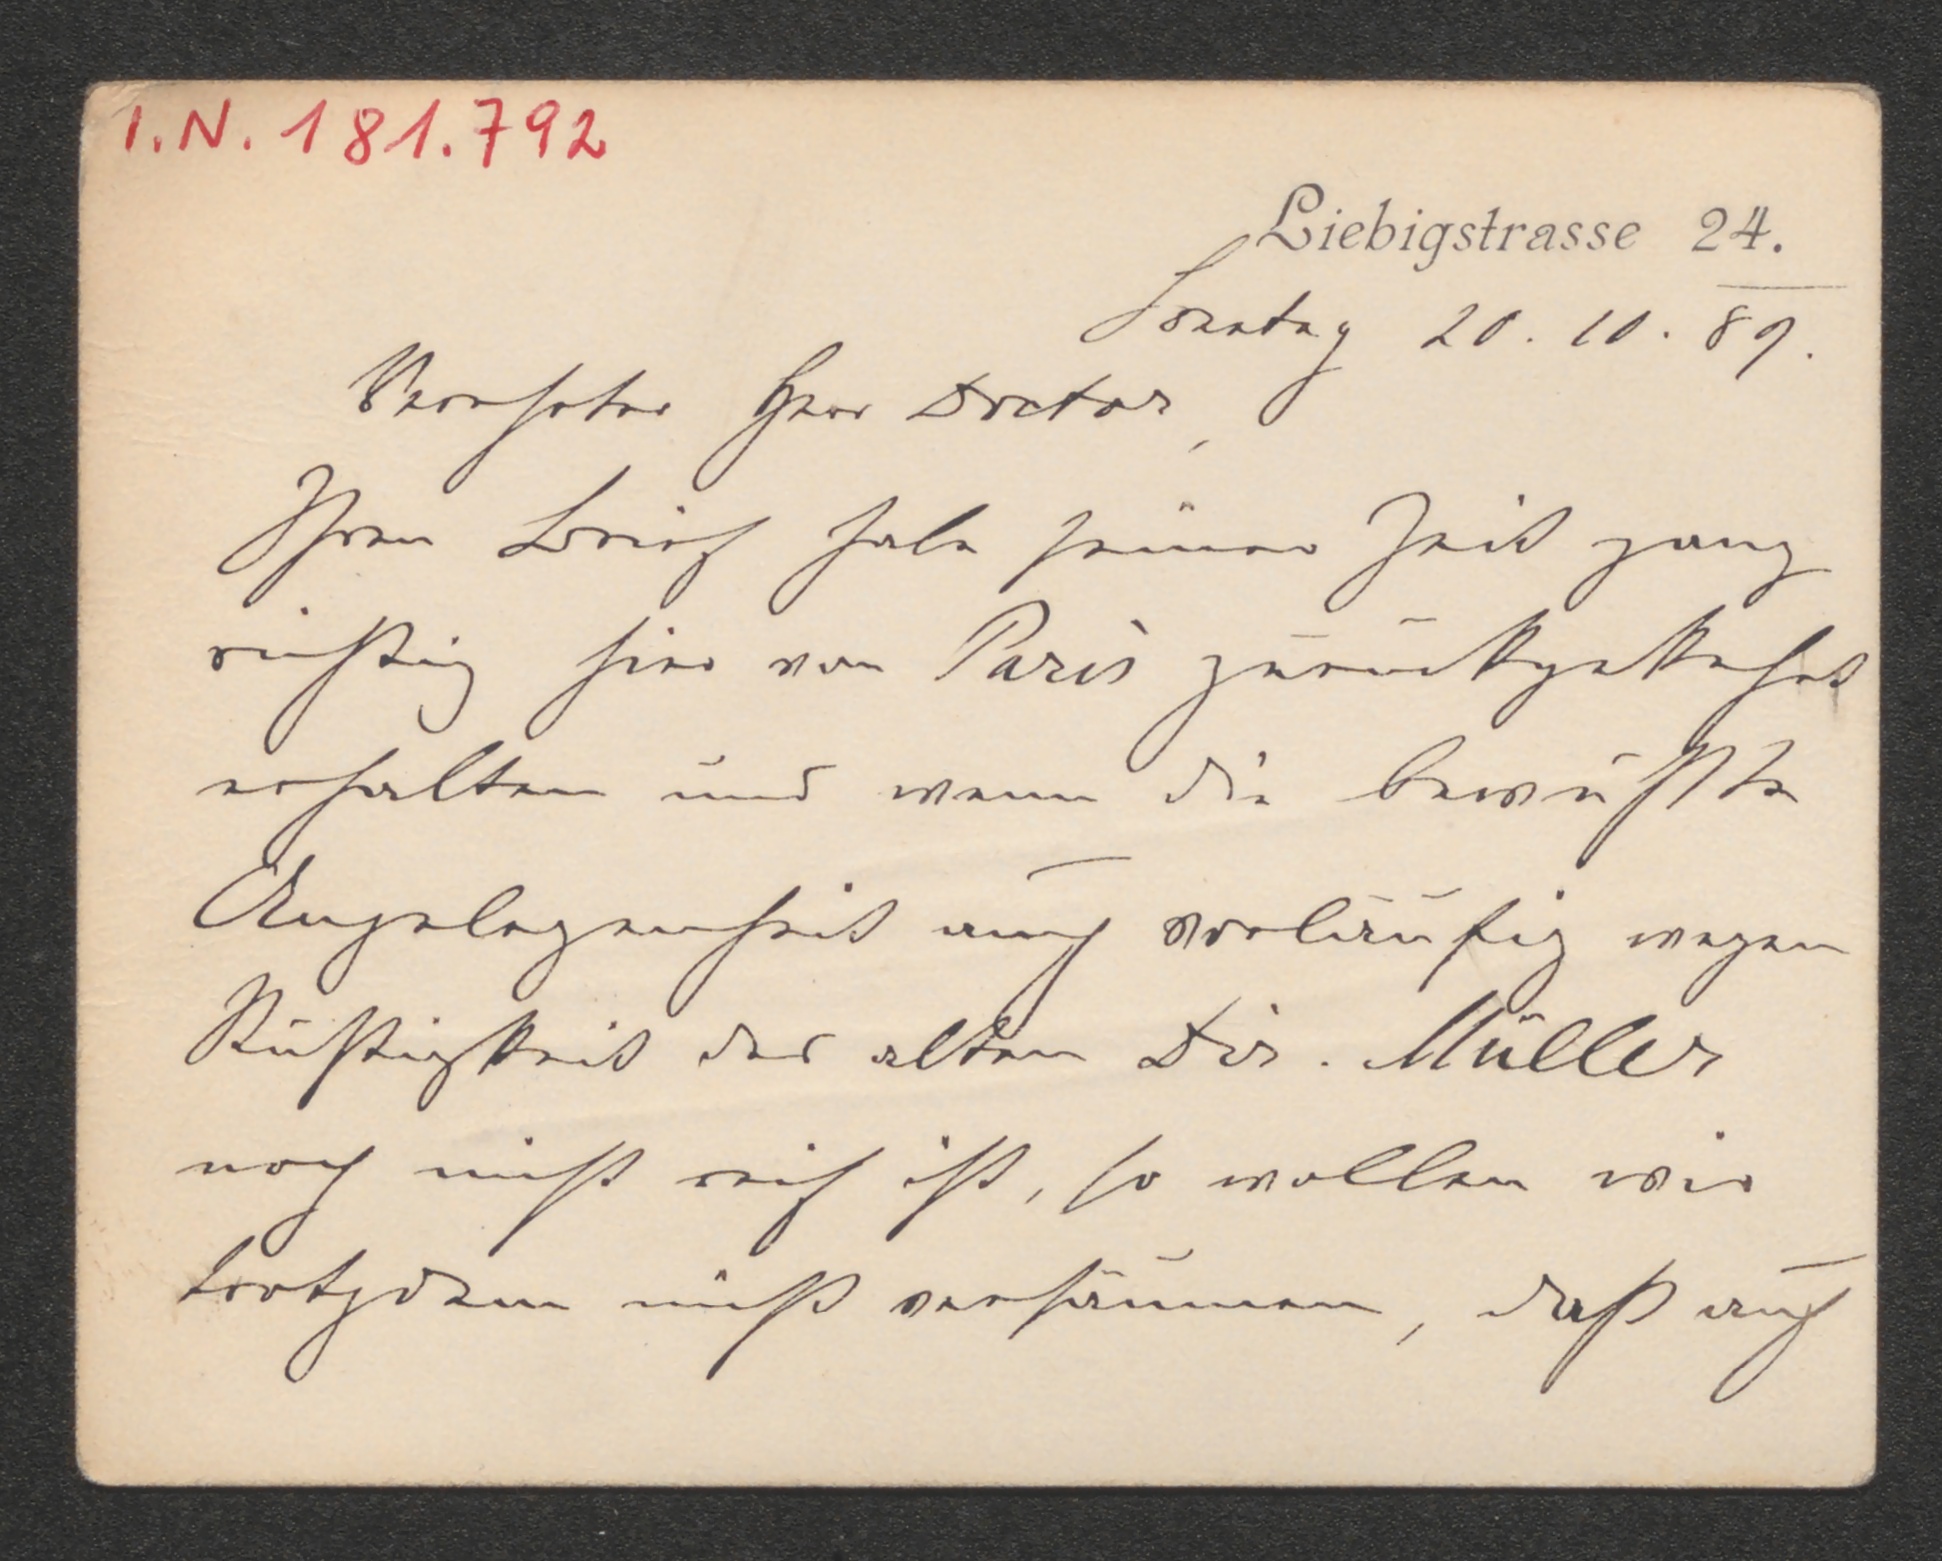 I.N. 181.792
Liebigstrasse 24.
Sonntag 20. 10. 89.
Verehrter Herr Doctor,
Ihren Brief habe seiner Zeit ganz
richtig hier von Paris zurückgekehrt
erhalten und wenn die bewußte
Angelegenheit auch vorläufig wegen
Rüstigkeit des alten Dir. Müller
noch nicht reif ist, so wollen wir
trotzdem nicht versäumen, daß auch